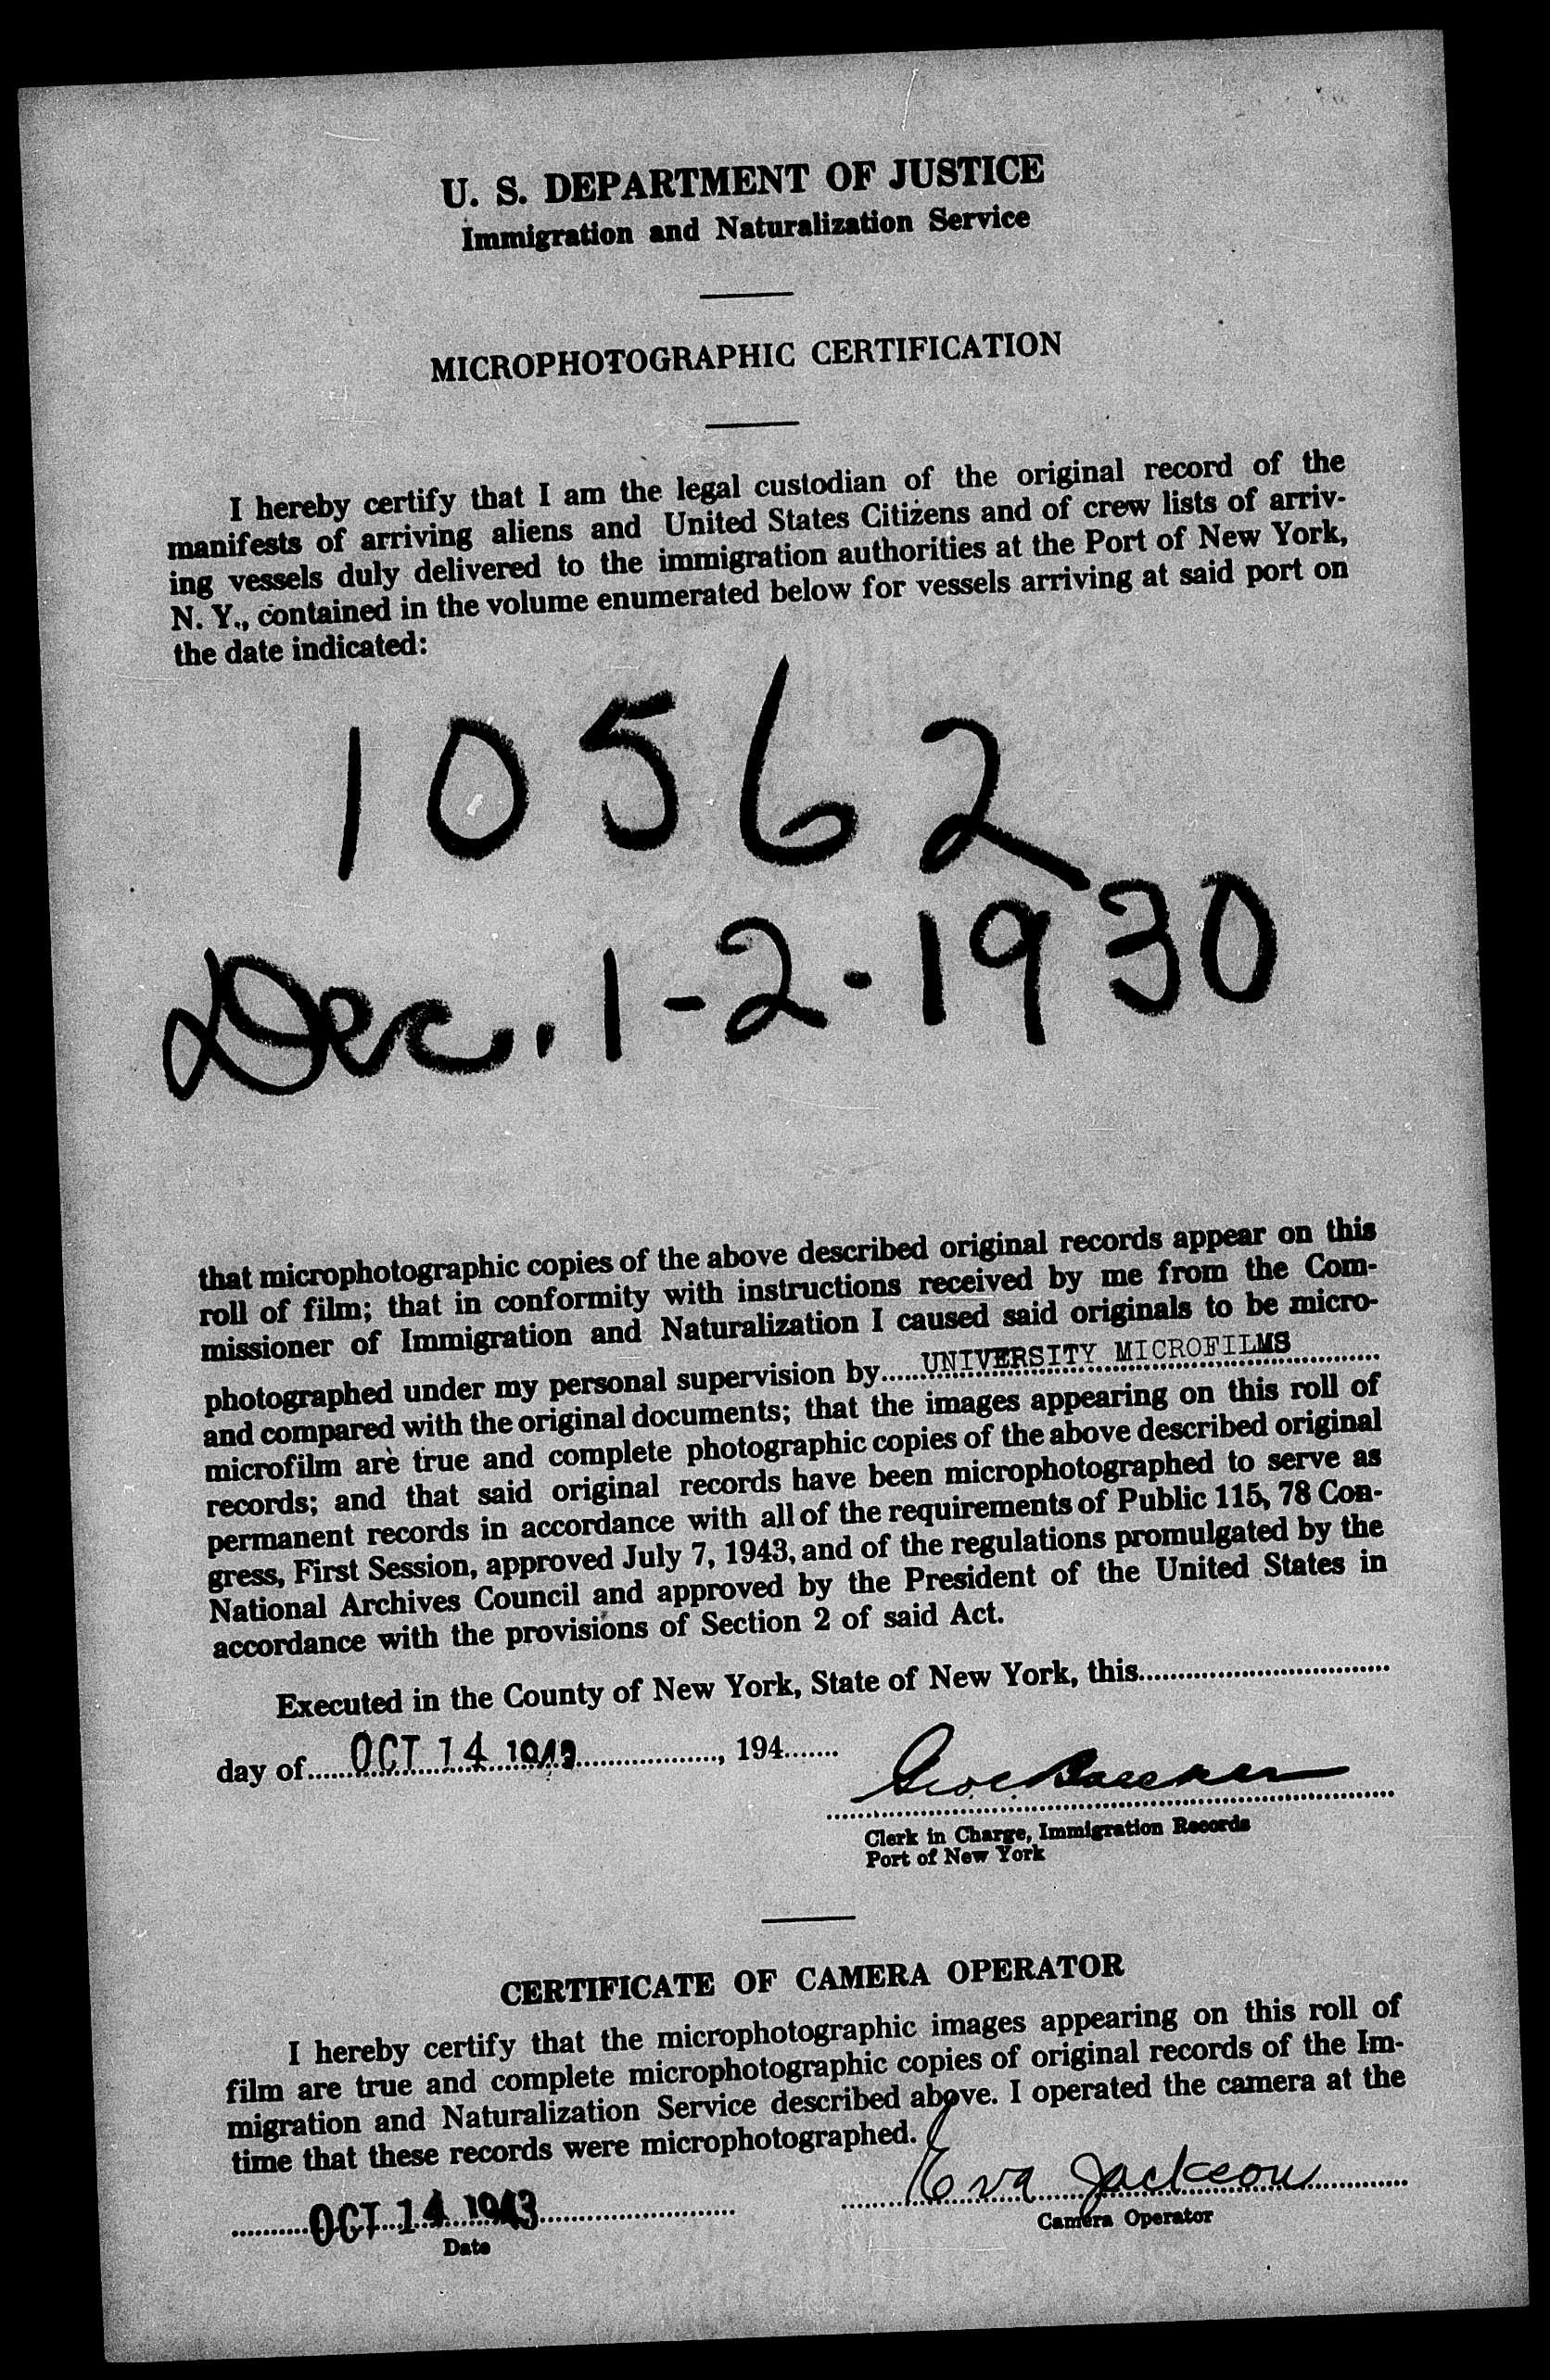 U. S. DEPARTMENT OF JUSTICE
Immigration and Naturalization Service
MICROPHOTOGRAPHIC CERTIFICATION
I hereby certify that I am the legal custodian of the original record of the
manifests of arriving aliens and United States Citizens and of crew lists of arriv-
ing vessels duly delivered to the immigration authorities at the Port of New York,
N. Y., contained in the volume enumerated below for vessels arriving at said port on
the date indicated:
10562
Dec. 1-2-1930
that microphotographic copies of the above described original records appear on this
roll of film; that in conformity with instructions received by me from the Com-
missioner of Immigration and Naturalization I caused said originals to be micro-
photographed under my personal supervision by......UNIVERSITY MICROFILMS
and compared with the original documents; that the images appearing on this roll of
microfilm are true and complete photographic copies of the above described original
records; and that said original records have been microphotographed to serve as
permanent records in accordance with all of the requirements of Public 115, 78 Con-
gress, First Session, approved July 7, 1943, and of the regulations promulgated by the
National Archives Council and approved by the President of the United States in
accordance with the provisions of Section 2 of said Act.
Executed in the County of New York, State of New York, this
day of OCT 14 1943, 194
Clerk in Charge, Immigration Records
Port of New York
CERTIFICATE OF CAMERA OPERATOR
I hereby certify that the microphotographic images appearing on this roll of
film are true and complete microphotographic copies of original records of the Im-
migration and Naturalization Service described above. I operated the camera at the
time that these records were microphotographed.
OCT 14 1943 Eva Jackson
Date Camera Operator